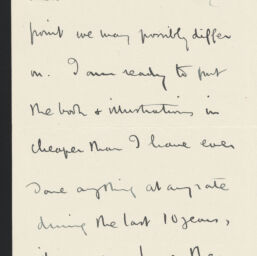 point we may possibly differ
on. I am ready to put
the book & illustrations in
cheaper than I have ever
done anything at any rate
during the last 10 years,
the